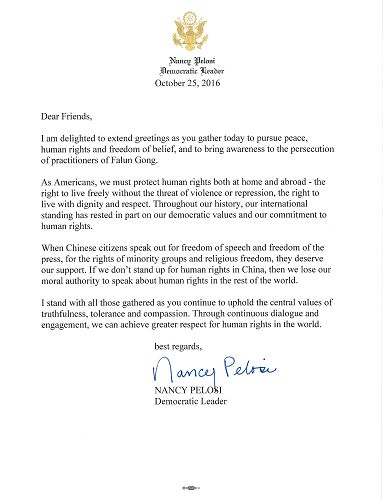 Nancy Pelosi
Democratic Leader
October 25, 2016
Dear Friends,
I am delighted to extend greetings as you gather today to pursue peace,
human rights and freedom of belief, and to bring awareness to the persecution
of practitioners of Falun Gong.
As Americans, we must protect human rights both at home and abroad - the
right to live freely without the threat of violence or repression, the right to
live with dignity and respect. Throughout our history, our international
standing has rested in part on our democratic values and our commitment to
human rights.
When Chinese citizens speak out for freedom of speech and freedom of the
press, for the rights of minority groups and religious freedom, they deserve
our support. If we don't stand up for human rights in China, then we lose our
moral authority to speak about human rights in the rest of the world.
I stand with all those gathered as you continue to uphold the central values of
truthfulness, tolerance and compassion. Through continuous dialogue and
engagement, we can achieve greater respect for human rights in the world.
best regards,
Nancy Pelosi
NANCY PELOSI
Democratic Leader